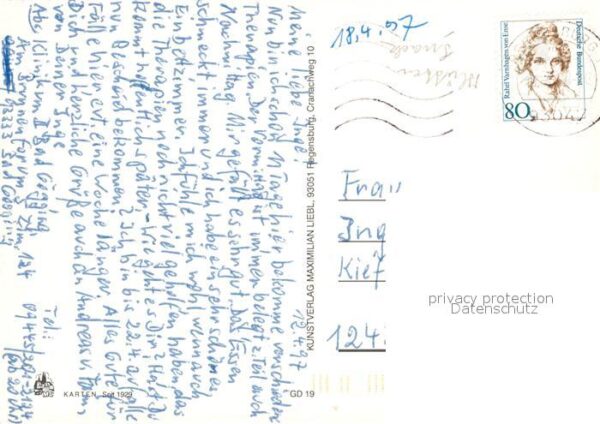 18.4.97
12.4.97
Meine liebe Inge!
Nun bin ich schon 11 Tage hier bekomme verschiedene
Therapien. Der Vormittag ist immer belegt z. Teil auch
Nachmittag. Mir gefällt es sehr gut. Das Essen
schmeckt immer und ich habe ein sehr schönes
Einbettzimmer. Ich fühle mich wohl, wenn auch
die Therapien noch nicht viel geholfen haben, das
kommt hoffentlich später. Wie geht es Dir? Hast Du
nur Bescheid bekommen? Ich bin bis 22.4. auf alle
Fälle hier evt. eine Woche länger. Alles Gute für
Dich und herzliche Grüße auch an Andreas u. Fam.
von Deiner Inge
Abs. Klinikum Bad Gögging
Am Brunnenforum 5 Zim. 124
93333 Bad Gögging
Tel.:
09445/201-2124
(ab 20 Uhr)
KUNSTVERLAG MAXIMILIAN LIEBL, 93051 Regensburg, Cranachweg 10
GD 19
KARTEN, Seit 1929
Rahel Varnhagen von Ense
Deutsche Bundespost
80
Frau
Ing
Kief
124
privacy protection
Datenschutz